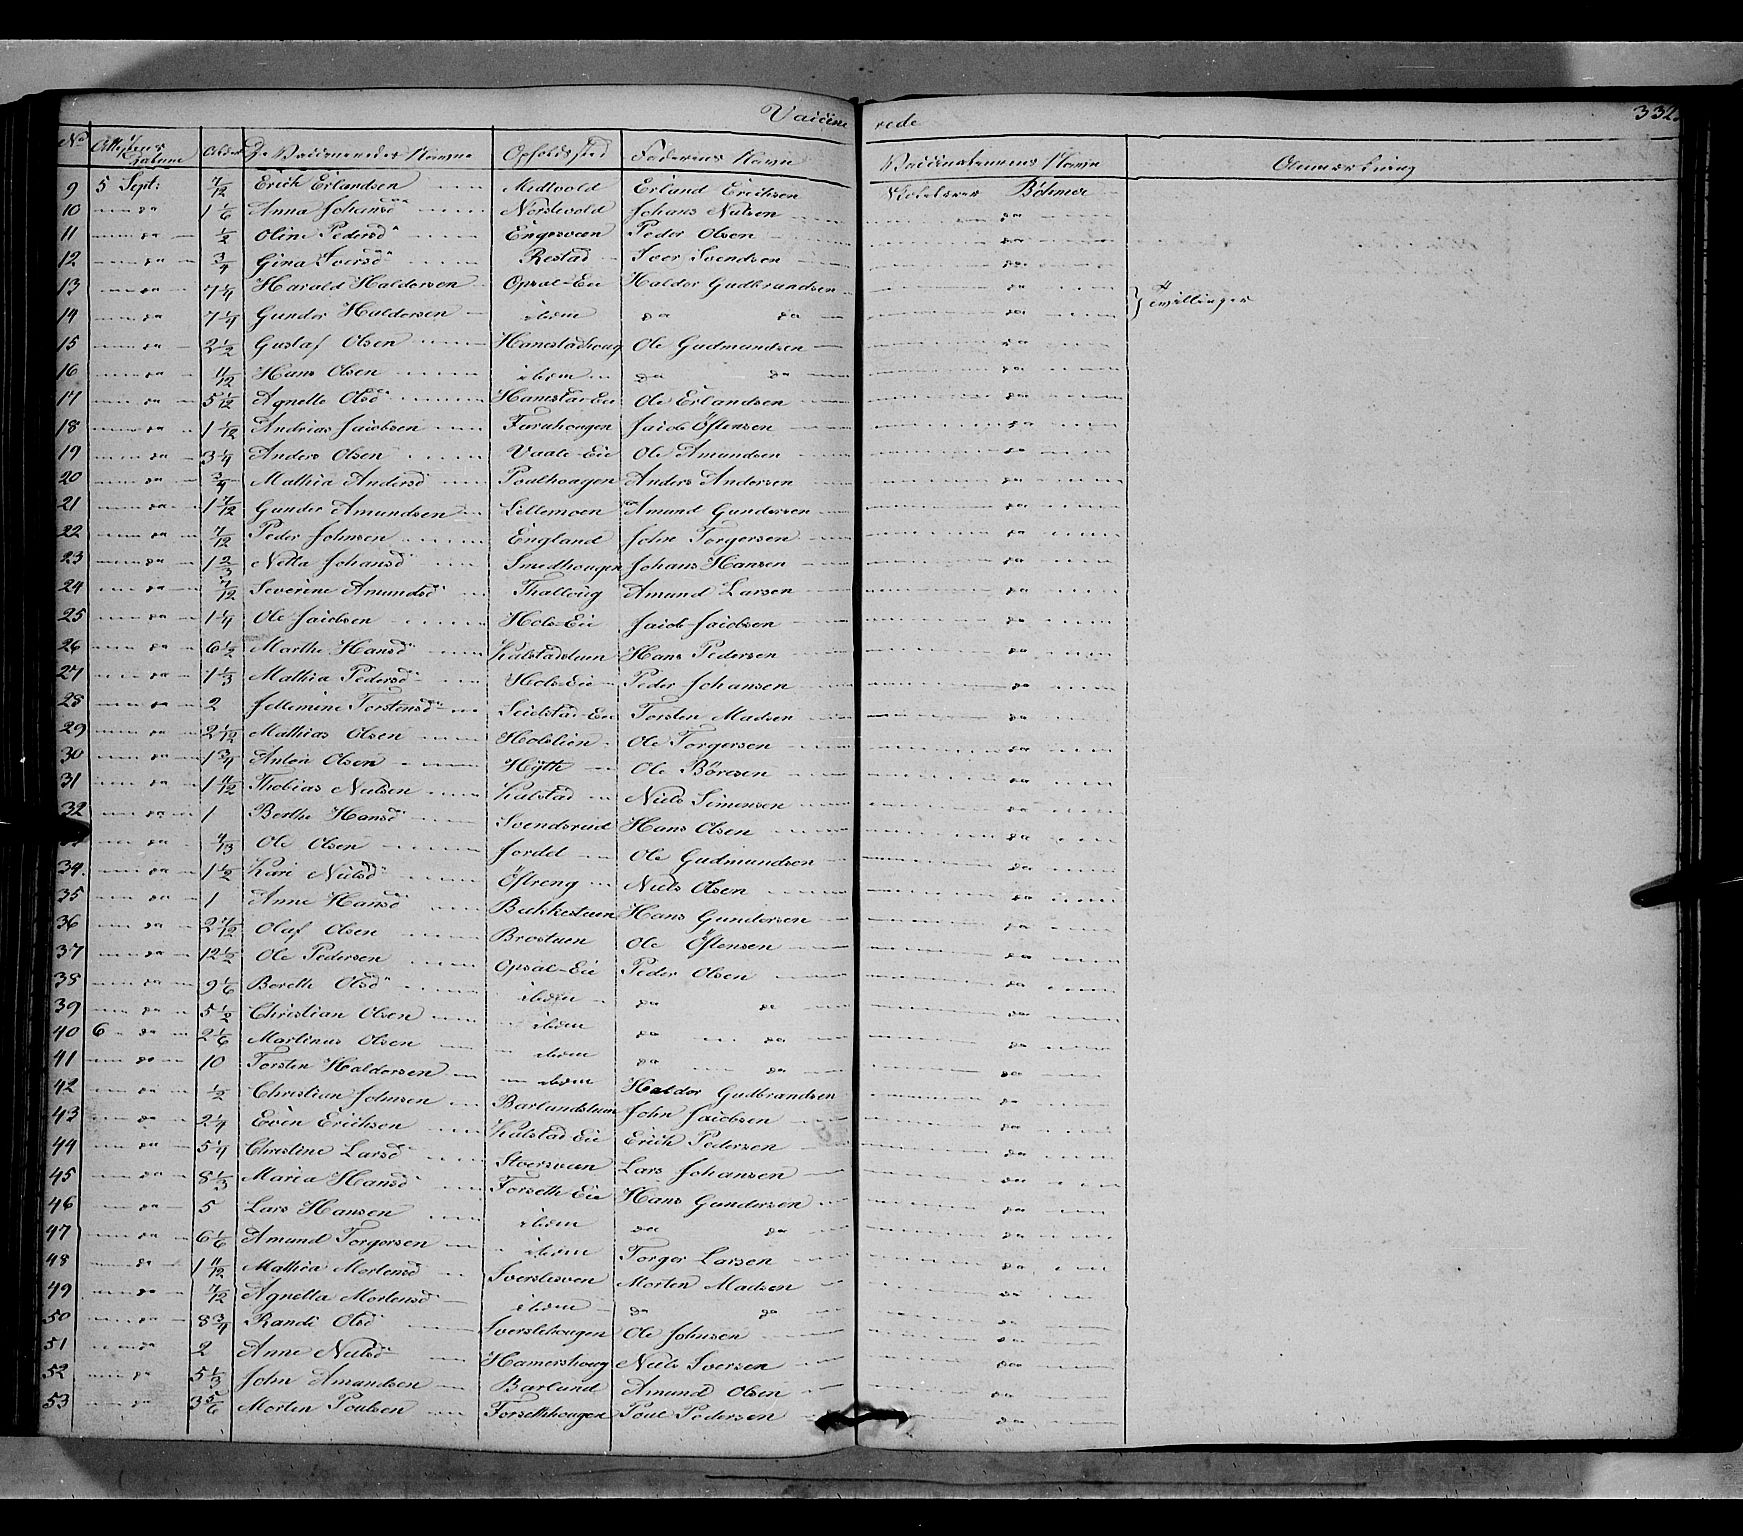 Vaccine rede 332.
No Attestens Datum Alder De Vaccineredes Navne Opholdssted Faderens Navn Vaccinateurens Navn Anmærkning
9 5 Sept: 7/12 Erich Erlandsen Midtvold Erland Erichsen Böhmer
10 da 1 1/6 Anna Johansd Nordsvold Johans Nielsen da
11 da 1/2 Oline Pedersd Engesveen Peder Olsen da
12 da 3/4 Gina Iversd Restad Iver Svendsen da
13 da 7 1/4 Harald Haldorsen Opsal-Eie Haldor Gudbrandsen da } Tvillinger
14 da 7 1/4 Gunder Haldorsen ibidem da da da
15 da 2 1/2 Gustaf Olsen Hamestadhoug Ole Gudmundsen da
16 da 11/12 Hans Olsen ibidem da da da
17 da 5 1/12 Agnette Olsd Hamsta-Eie Ole Erlandsen da
18 da 1 1/12 Andreas Jacobsen Furuhougen Jacob Östensen da
19 da 3 1/4 Anders Olsen Vaale-Eie Ole Amundsen da
20 da 3/4 Mathia Andersd Poalhougen Anders Andersen da
21 da 1 7/12 Gunder Amundsen Lillemoen Amund Gundersen da
22 da 7/12 Peder Johnsen England John Torgersen da
23 da 1 2/3 Netta Johansd Smedhougen Johans Hansen da
24 da 7/12 Severine Amundsd Thalloug Amund Larsen da
25 da 1 1/4 Ole Jacobsen Hols-Eie Jacob Jacobsen da
26 da 6 1/2 Marthe Hansd Kalstadstuen Hans Pedersen da
27 da 1 1/3 Mathia Pedersd Hols-Eie Peder Johansen da
28 da 2 Jellemine Torstensd Seielstad-Eie Torsten Madsen da
29 da 2 1/12 Mathias Olsen Holslien Ole Torgersen da
30 da 1 3/4 Anton Olsen Hÿtte Ole Böresen da
31 da 1 11/12 Thobias Nielsen Kalstad Niels Simensen da
32 da 1 Berthe Hansd Svendsrud Hans Olsen da
da Ole Olsen Jordet Ole Gudmundsen da
34. da 1 1/2 Kari Nielsd Östreng Niels Olsen da
35 da 1 Anne Hansd Bakkestuen Hans Gundersen da
36 da 2 7/12 Olaf Olsen Brostuen Ole Östensen da
37 da 12 1/2 Ole Pedersen Opsal-Eie Peder Olsen da
38 da 9 1/6 Berethe Olsd ibidem da da da
39 da 5 1/2 Christian Olsen ibidem da da
40 6 da 2 1/6 Martinus Olsen ibidem da da da
41 da 10 Torsten Haldorsen ibidem Haldor Gudbrandsen da
42 da 1/2 Christian Johnsen Barlundstuen John Jacobsen da
43 da 2 1/4 Even Erichsen Kalstad Eie Erich Pedersen da
44 da 5 1/4 Christine Larsd Stoersveen Lars Johansen da
45 da 8 1/3 Maria Hansd Forseth Eie Hans Gundersen da
46 da 5 Lars Hansen ibidem da da da
47 da 6 1/6 Amund Torgersen ibidem Torger Larsen da
48 da 1 11/12 Mathia Mortensd Sverslesven Morten Madsen da
49 da 7/12 Agnetta Mortensd ibidem da da da
50 da 8 3/4 Randi Olsd Sverslehougen Ole Johnsen da
51 da 2 Anne Nielsd Hamershoug Niels Iversen da
52 da 5 1/3 John Amundsen Barlund Amund Olsen da
53 da 3 5/6 Morten Poulsen Forsethhougen Poul Pedersen da